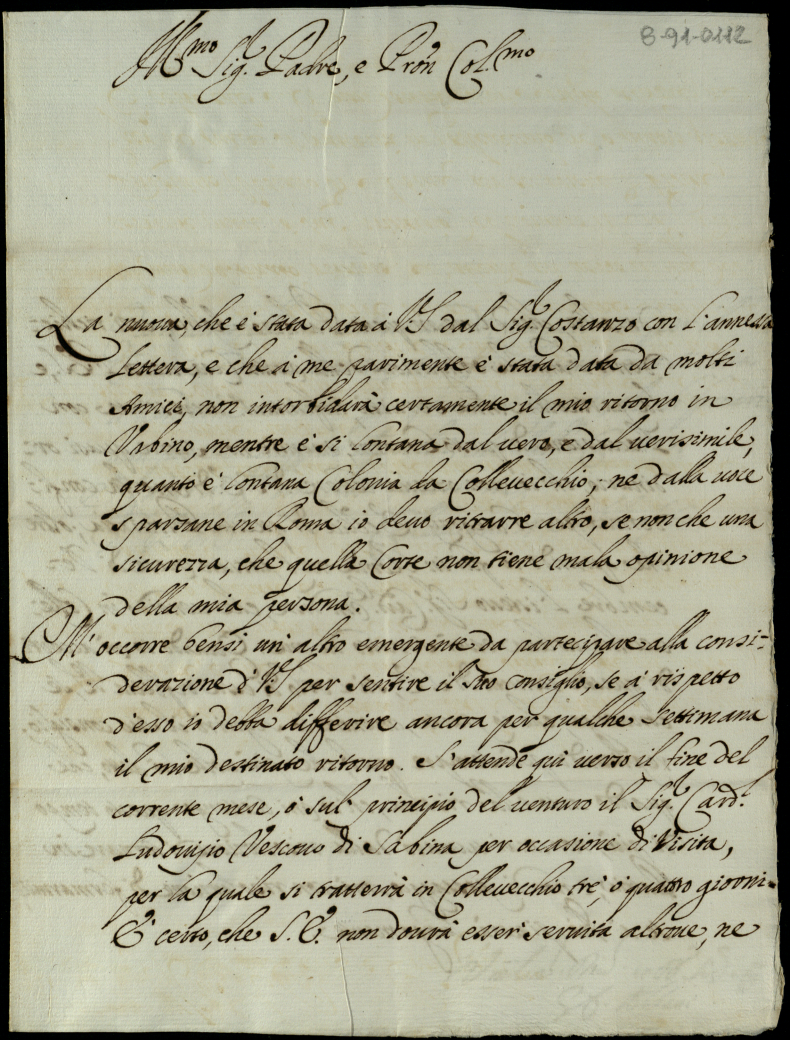 B-91-0112
Ill.mo Sig.r Padre, e Pron Col.mo
La nuova, che è stata data à V.S. dal Sig.r Costanzo con l'annessa
lettera, e che à me parimente è stata data da molti
Amici, non intorbidarà certamente il mio ritorno in
Urbino, mentre è si lontana dal uero, e dal uerisimile,
quanto è lontana Colonia da Colleuecchio; ne dalla uoce
sparsane in Roma io deuo ritrarre altro, se non che una
sicurezza, che quella Corte non tiene mala opinione
della mia persona.
M'occorre bensi un'altro emergente da partecipare alla consi-
derazione di V.S. per sentire il suo consiglio, se à rispetto
d'esso io debba differire ancora per qualche settimana
il mio destinato ritorno. S'attende quì uerso il fine del
corrente mese, ò sul principio del uenturo il Sig.r Card.l
Ludouisio Vescouo di Sabina per occasione di Visita,
per la quale si tratterrà in Colleuecchio trè, ò quattro giorni.
È certo, che S.E. non dourà esser seruita altroue, ne